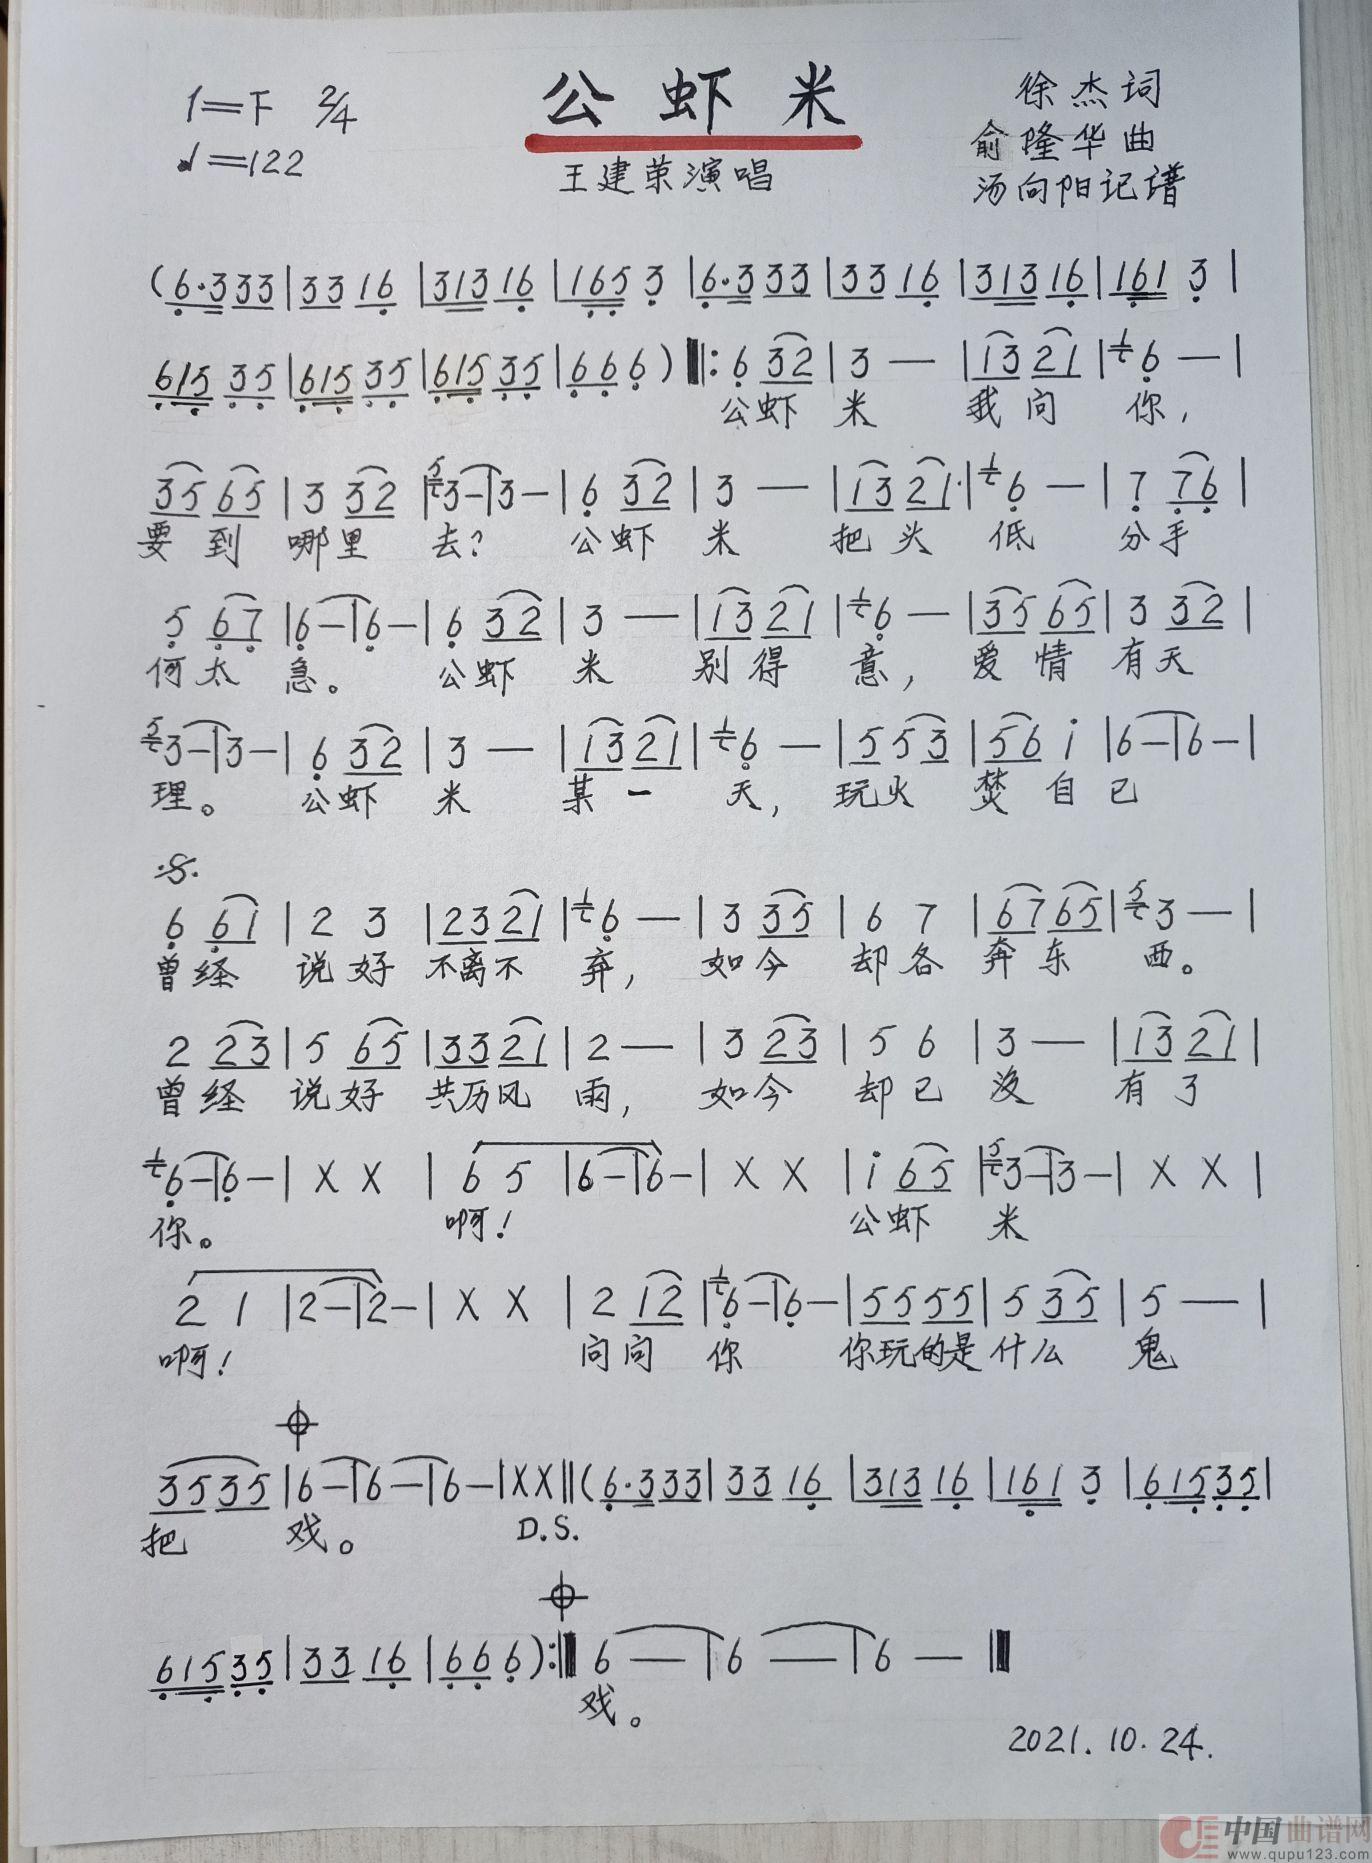 公虾米
1=F 2/4
♩=122
王建荣演唱
徐杰词
俞隆华曲
汤向阳记谱
(6·333|33 16|313 16|165 3|6·333|33 16|313 16|161 3|
615 35|615 35|615 35|666)‖:6 32|3 —|13 21|6 —|
公虾 米 我问 你,
35 65|3 32|3—|3—|6 32|3 —|13 21·|6 —|7 76|
要到 哪里 去? 公虾 米 把头 低 分手
5 67|6—|6—|6 32|3 —|13 21|6 —|35 65|3 32|
何太 急。 公虾 米 别得 意, 爱情 有天
3—|3—|6 32|3 —|13 21|6 —|55 3|56 i|6—|6—|
理。 公虾 米 某一 天, 玩火 焚自已
6 61|2 3|23 21|6 —|3 35|6 7|67 65|3 —|
曾经 说好 不离不 弃, 如今 却各 奔东 西。
2 23|5 65|33 21|2 —|3 23|5 6|3 —|13 21|
曾经 说好 共历风 雨, 如今 却已 没 有了
6—|6—|X X|6 5|6—|6—|X X|i 65|3—|3—|X X|
你。 啊! 公虾 米
2 1|2—|2—|X X|2 12|6—|6—|55 55|5 35|5 —|
啊! 问问 你 你玩的是 什么 鬼
35 35|6—|6—|6—|XX‖(6·333|33 16|313 16|161 3|615 35|
把 戏。 D.S.
615 35|33 16|666):‖6 —|6 —|6 —‖
戏。
2021.10.24.
中国曲谱网
www.qupu123.com